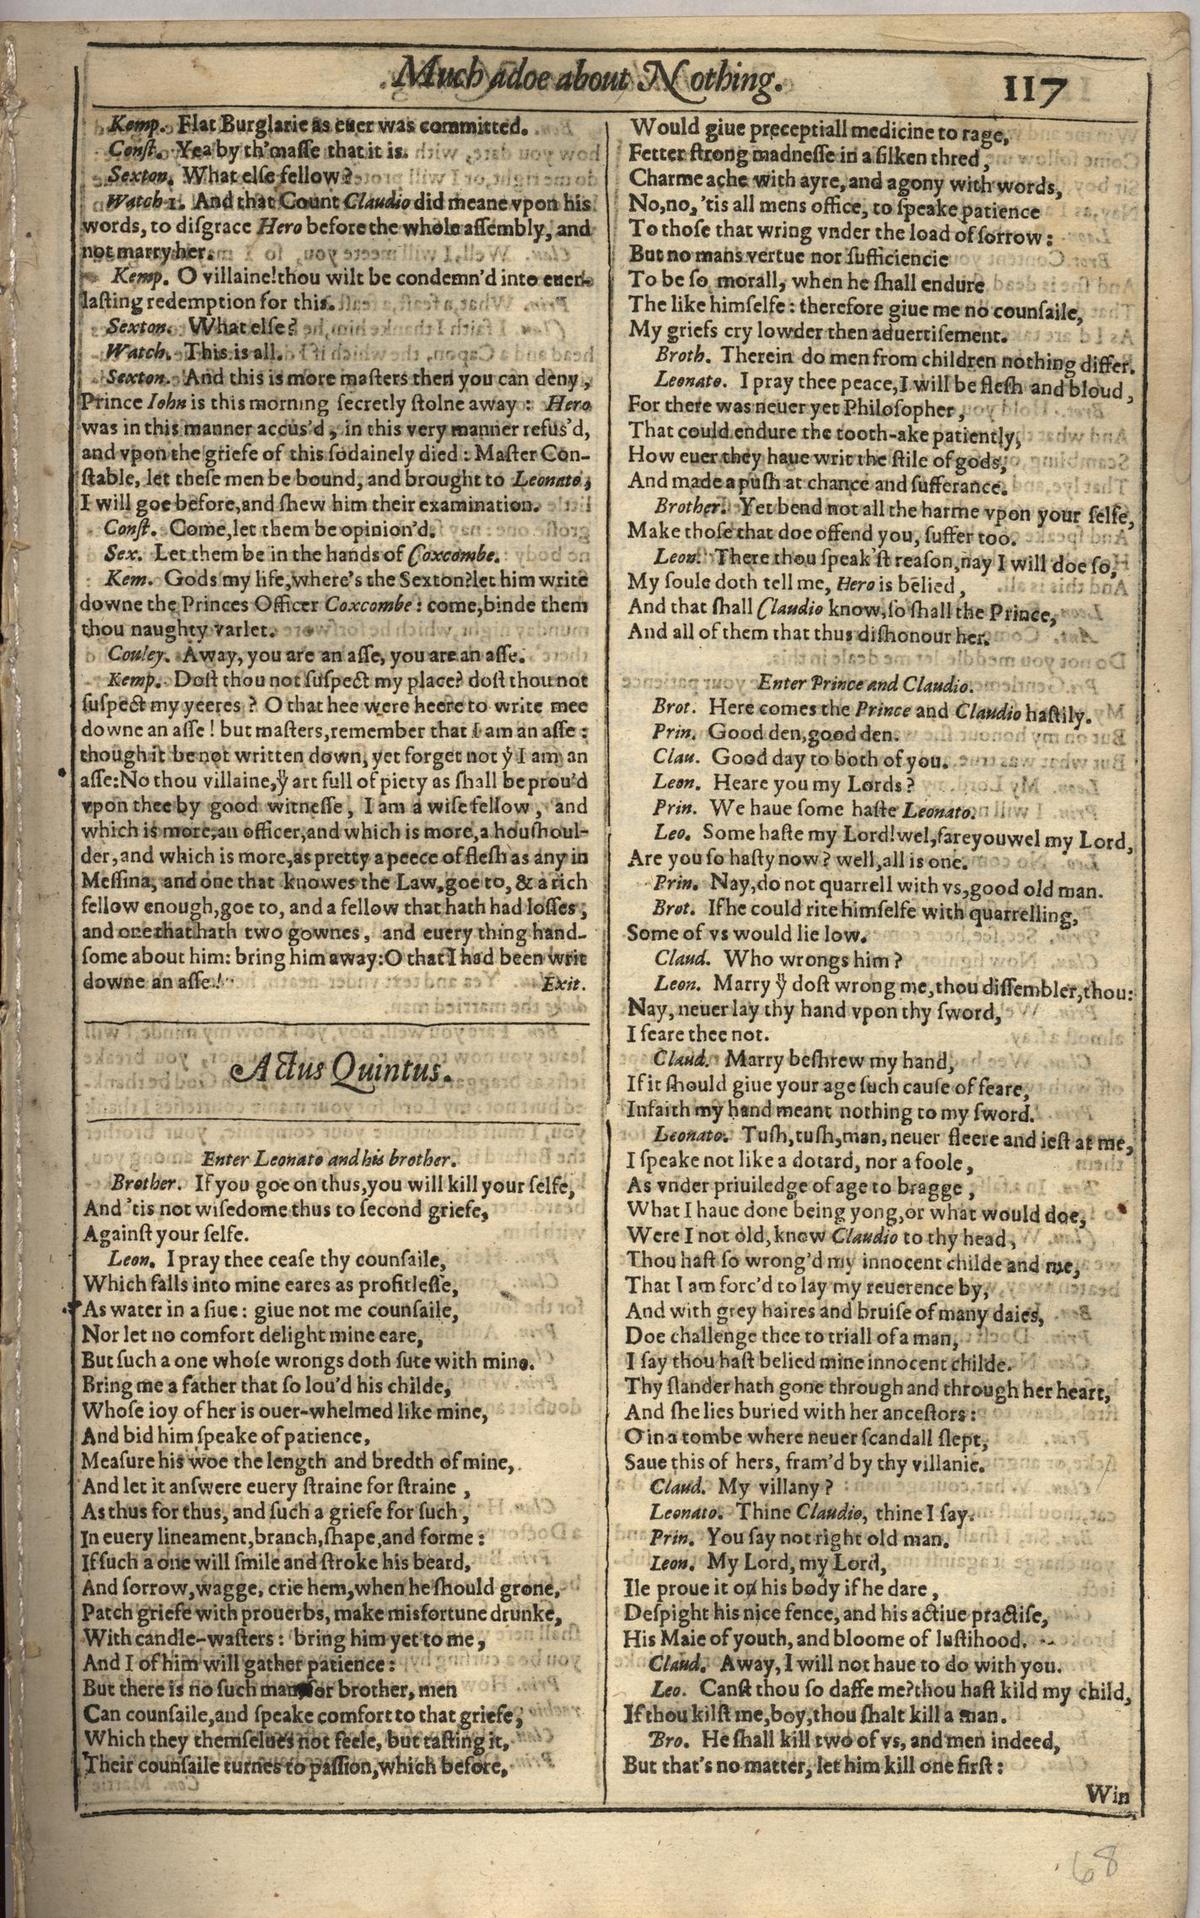 Much adoe about Nothing.
117
Kemp. Flat Burglarie as euer was committed.
Const. Yea by th'masse that it is.
Sexton. What else fellow?
Watch 1. And that Count Claudio did meane vpon his
words, to disgrace Hero before the whole assembly, and
not marry her.
Kemp. O villaine! thou wilt be condemn'd into euer-
lasting redemption for this.
Sexton. What else?
Watch. This is all.
Sexton. And this is more masters then you can deny,
Prince Iohn is this morning secretly stolne away: Hero
was in this manner accus'd, in this very manner refus'd,
and vpon the griefe of this sodainely died: Master Con-
stable, let these men be bound, and brought to Leonato,
I will goe before, and shew him their examination.
Const. Come, let them be opinion'd.
Sex. Let them be in the hands of Coxcombe.
Kem. Gods my life, where's the Sexton? let him write
downe the Princes Officer Coxcombe: come, binde them
thou naughty varlet.
Couley. Away, you are an asse, you are an asse.
Kemp. Dost thou not suspect my place? dost thou not
suspect my yeeres? O that hee were heere to write mee
downe an asse! but masters, remember that I am an asse:
though it be not written down, yet forget not yͭ I am an
asse: No thou villaine, yͧ art full of piety as shall be prou'd
vpon thee by good witnesse, I am a wise fellow, and
which is more, an officer, and which is more, a houshoul-
der, and which is more, as pretty a peece of flesh as any in
Messina, and one that knowes the Law, goe to, & a rich
fellow enough, goe to, and a fellow that hath had losses,
and one that hath two gownes, and euery thing hand-
some about him: bring him away: O that I had been writ
downe an asse!
Exit.
Actus Quintus.
Enter Leonato and his brother.
Brother. If you goe on thus, you will kill your selfe,
And 'tis not wisedome thus to second griefe,
Against your selfe.
Leon. I pray thee cease thy counsaile,
Which falls into mine eares as profitlesse,
As water in a siue: giue not me counsaile,
Nor let no comfort delight mine eare,
But such a one whose wrongs doth sute with mine.
Bring me a father that so lou'd his childe,
Whose ioy of her is ouer-whelmed like mine,
And bid him speake of patience,
Measure his woe the length and bredth of mine,
And let it answere euery straine for straine,
As thus for thus, and such a griefe for such,
In euery lineament, branch, shape, and forme:
If such a one will smile and stroke his beard,
And sorrow, wagge, crie hem, when he should grone,
Patch griefe with prouerbs, make misfortune drunke,
With candle-wasters: bring him yet to me,
And I of him will gather patience:
But there is no such man, for brother, men
Can counsaile, and speake comfort to that griefe,
Which they themselues not feele, but tasting it,
Their counsaile turnes to passion, which before,
Would giue preceptiall medicine to rage,
Fetter strong madnesse in a silken thred,
Charme ache with ayre, and agony with words,
No, no, 'tis all mens office, to speake patience
To those that wring vnder the load of sorrow:
But no mans vertue nor sufficiencie
To be so morall, when he shall endure
The like himselfe: therefore giue me no counsaile,
My griefs cry lowder then aduertisement.
Broth. Therein do men from children nothing differ.
Leonato. I pray thee peace, I will be flesh and bloud,
For there was neuer yet Philosopher,
That could endure the tooth-ake patiently,
How euer they haue writ the stile of gods,
And made a push at chance and sufferance.
Brother. Yet bend not all the harme vpon your selfe,
Make those that doe offend you, suffer too.
Leon. There thou speak'st reason, nay I will doe so,
My soule doth tell me, Hero is belied,
And that shall Claudio know, so shall the Prince,
And all of them that thus dishonour her.
Enter Prince and Claudio.
Brot. Here comes the Prince and Claudio hastily.
Prin. Good den, good den.
Clau. Good day to both of you.
Leon. Heare you my Lords?
Prin. We haue some haste Leonato.
Leo. Some haste my Lord! wel, fare you wel my Lord,
Are you so hasty now? well, all is one.
Prin. Nay, do not quarrell with vs, good old man.
Brot. If he could rite himselfe with quarrelling,
Some of vs would lie low.
Claud. Who wrongs him?
Leon. Marry yͧ dost wrong me, thou dissembler, thou:
Nay, neuer lay thy hand vpon thy sword,
I feare thee not.
Claud. Marry beshrew my hand,
If it should giue your age such cause of feare,
Infaith my hand meant nothing to my sword.
Leonato. Tush, tush, man, neuer fleere and iest at me,
I speake not like a dotard, nor a foole,
As vnder priuiledge of age to bragge,
What I haue done being yong, or what would doe,
Were I not old, know Claudio to thy head,
Thou hast so wrong'd my innocent childe and me,
That I am forc'd to lay my reuerence by,
And with grey haires and bruise of many daies,
Doe challenge thee to triall of a man,
I say thou hast belied mine innocent childe.
Thy slander hath gone through and through her heart,
And she lies buried with her ancestors:
O in a tombe where neuer scandall slept,
Saue this of hers, fram'd by thy villanie.
Claud. My villany?
Leonato. Thine Claudio, thine I say.
Prin. You say not right old man.
Leon. My Lord, my Lord,
Ile proue it on his body if he dare,
Despight his nice fence, and his actiue practise,
His Maie of youth, and bloome of lustihood.
Claud. Away, I will not haue to do with you.
Leo. Canst thou so daffe me? thou hast kild my child,
If thou kilst me, boy, thou shalt kill a man.
Bro. He shall kill two of vs, and men indeed,
But that's no matter, let him kill one first:
Win
68